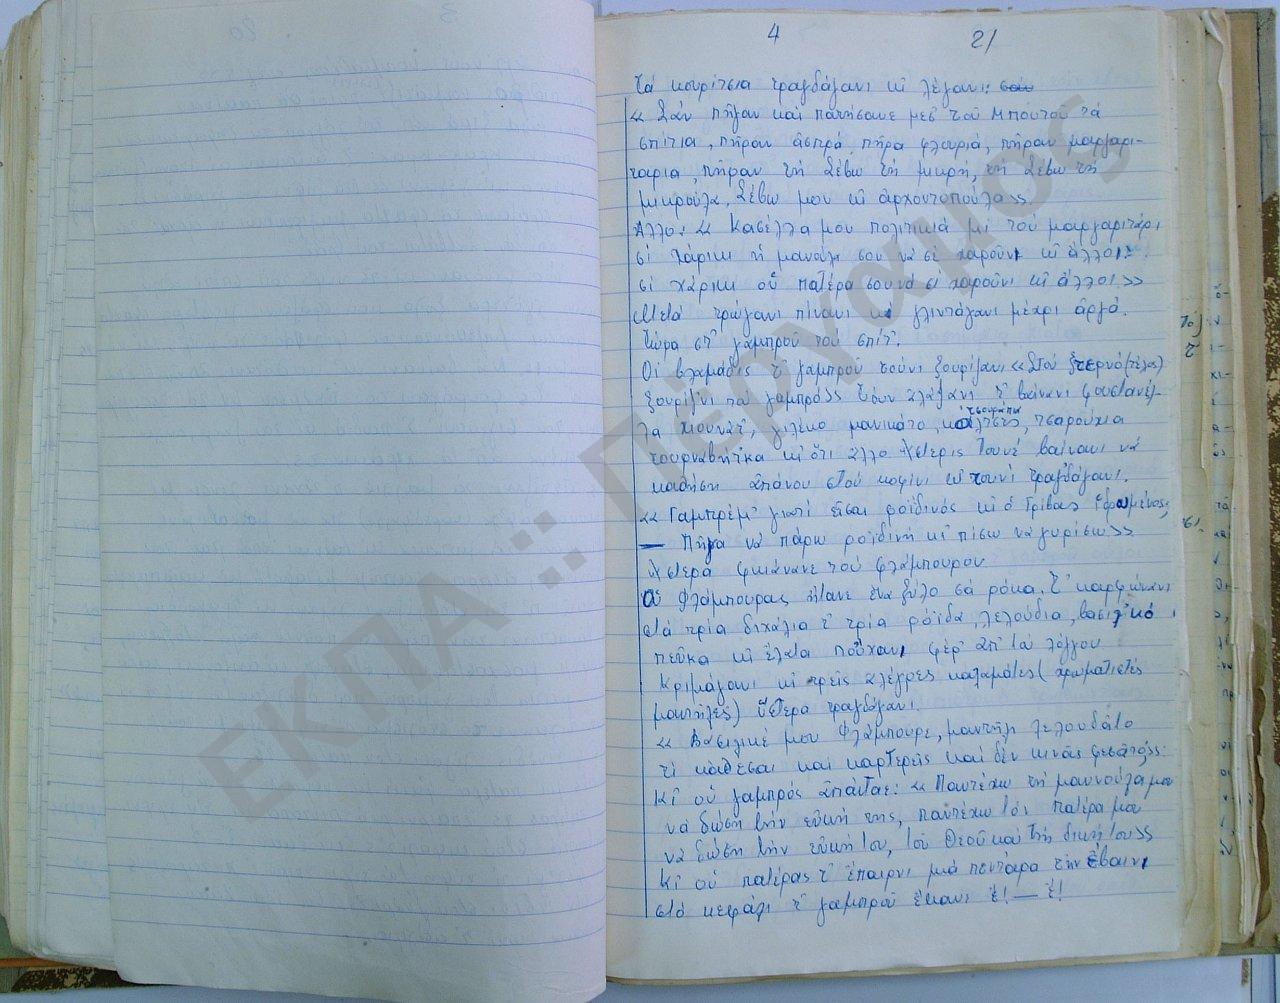 4 21
τά κουρίτσια τραγδάγανι κί λέγανι:
« Σάν πῆγαν καί πατήσανε μες τοῦ Μπουτοῦ τά
σπίτια, πῆραν ἄσπρα, πῆρα φλουριά, πῆραν μαργαρι-
ταρια, πῆραν τή Δέβω τή μικρή, τή Δέβω τή
μικρούλα, Δέβω μου κί ἀρχοντοπούλα».
Αλλο: « Κασέλλα μου πολιτικιά μί τού μαργαριτάρι
σί χάρικι ἡ μανούλα σου νά σί χαροῦνι κί ἄλλοι:
σί χάρικι οὑ πατέρα σου νά σι χαροῦνι κί ἄλλοι»
Μετά τρώγανι πίνανι κί γλιντάγανι μέχρι ἀργά.
Τώρα στ' γαμπροῦ τού σπίτ'.
Οἱ βλαμάδις τ' γαμπροῦ τούνι ξουρίζανι «Στού στερνό (τέλος)
ξουρίζνι τού γαμπρό» Τόυν ἀλάζανι τ' βάνανι φουστανέλ-
λα χιουνάτ', γιλέκο μανικάτο, τσουράπια, τσαρούχια
τουρναβίτ'κα κί ὅτι ἄλλο. Ὕστερις τουνέ βαίναανι νά
καθήση ἀπάνου στού κοφίνι κί τουνί τραγδάγανι.
« Γαμπρέμ' γιατί εἶσαι ροϊδινός κί ὁ Γρίβας ἱδρωμένος;
— Πῆγα νά πάρω ροϊδινή κί πίσω νά γυρίσω»
Ὕστερα φκιάνανε τού φλάμπουρου
Οὑ Φλάμπουρας ἤτανε ἕνα ξύλο σά ρόκα. Τ' καρφώνανι
στά τρία διχάλια τ' τρία ρόϊδα, λελούδια, βασιλ'κό,
πεῦκα κί ἐλάτα πούχανι φέρ' ἀπ' τού λόγγου
Κριμάγανι κί τρεῖς ἀλέγρες καλαμάτες (χρωματιστές
μαντήλες) ὕστερα τραγδάγανι.
« Βασιλικέ μου Φλάμπουρε, μαντήλι λελουδάτο
τί κάθεσαι καί καρτερεῖς καί δέν κινᾶς φεσάτο»:
Κί οὑ γαμπρός ἀπαντάε: « Παντέχω τή μαννούλα μου
νά δώση τήν εὐκή της, παντέχω τόν πατέρα μου
νά δώση τήν εὐκή του, τοῦ Θεοῦ καί τή δική του»
Κί οὑ πατέρας τ' ἔπαιρνι μιά πεντάρα τήν ἔβαινι
στό κεφάλι τ' γαμπροῦ ἔκανι ἐ! — ἐ!
ΕΚΠΑ :: Πέργαμος